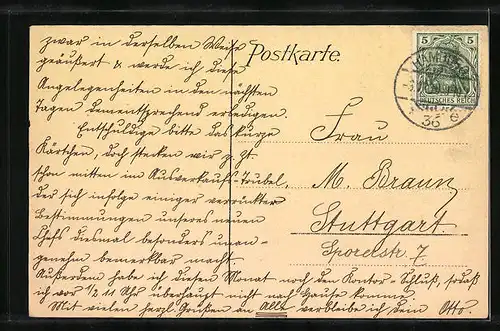 zwar in derselben Weise
geäußert & werde ich diese
Angelegenheiten in den nächsten
Tagen dementsprechend erledigen.
Entschuldige bitte das kurze
Kärtchen, doch stecken wir z. Zt.
schon mitten im Ausverkaufs-Trubel,
der sich infolge einiger verrückter
Bestimmungen unseres neuen
Chefs diesmal besonders unan-
genehm bemerkbar macht.
Außerdem habe ich diesen Monat noch den Kontor-Schluß, sodaß
ich vor 1/2 11 Uhr überhaupt nicht nach Hause komme.
Mit vielen herzl. Grüßen an Alle verbleibe ich dein Otto.
Postkarte.
5 5
DEUTSCHES REICH
36
Frau
M. Braun
Stuttgart
7